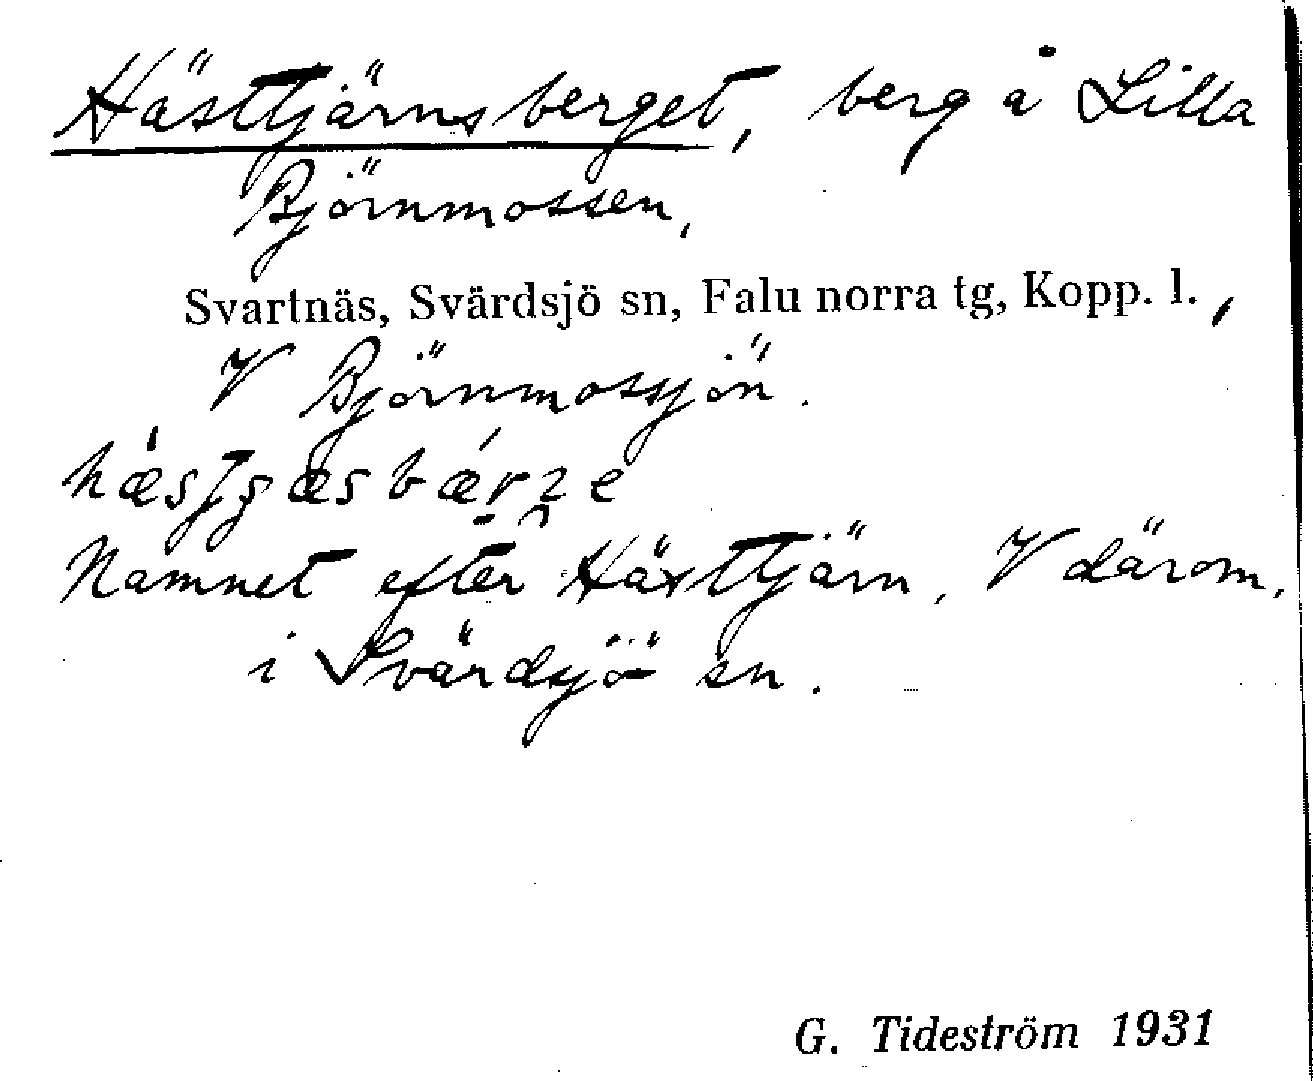 Hästtjärnsberget, berg å Lilla
Björnmossen,
Svartnäs, Svärdsjö sn, Falu norra tg, Kopp. l.,
V Björnmossjön.
Namnet efter Hästtjärn, V därom,
i Svärdsjö sn.
G. Tideström 1931